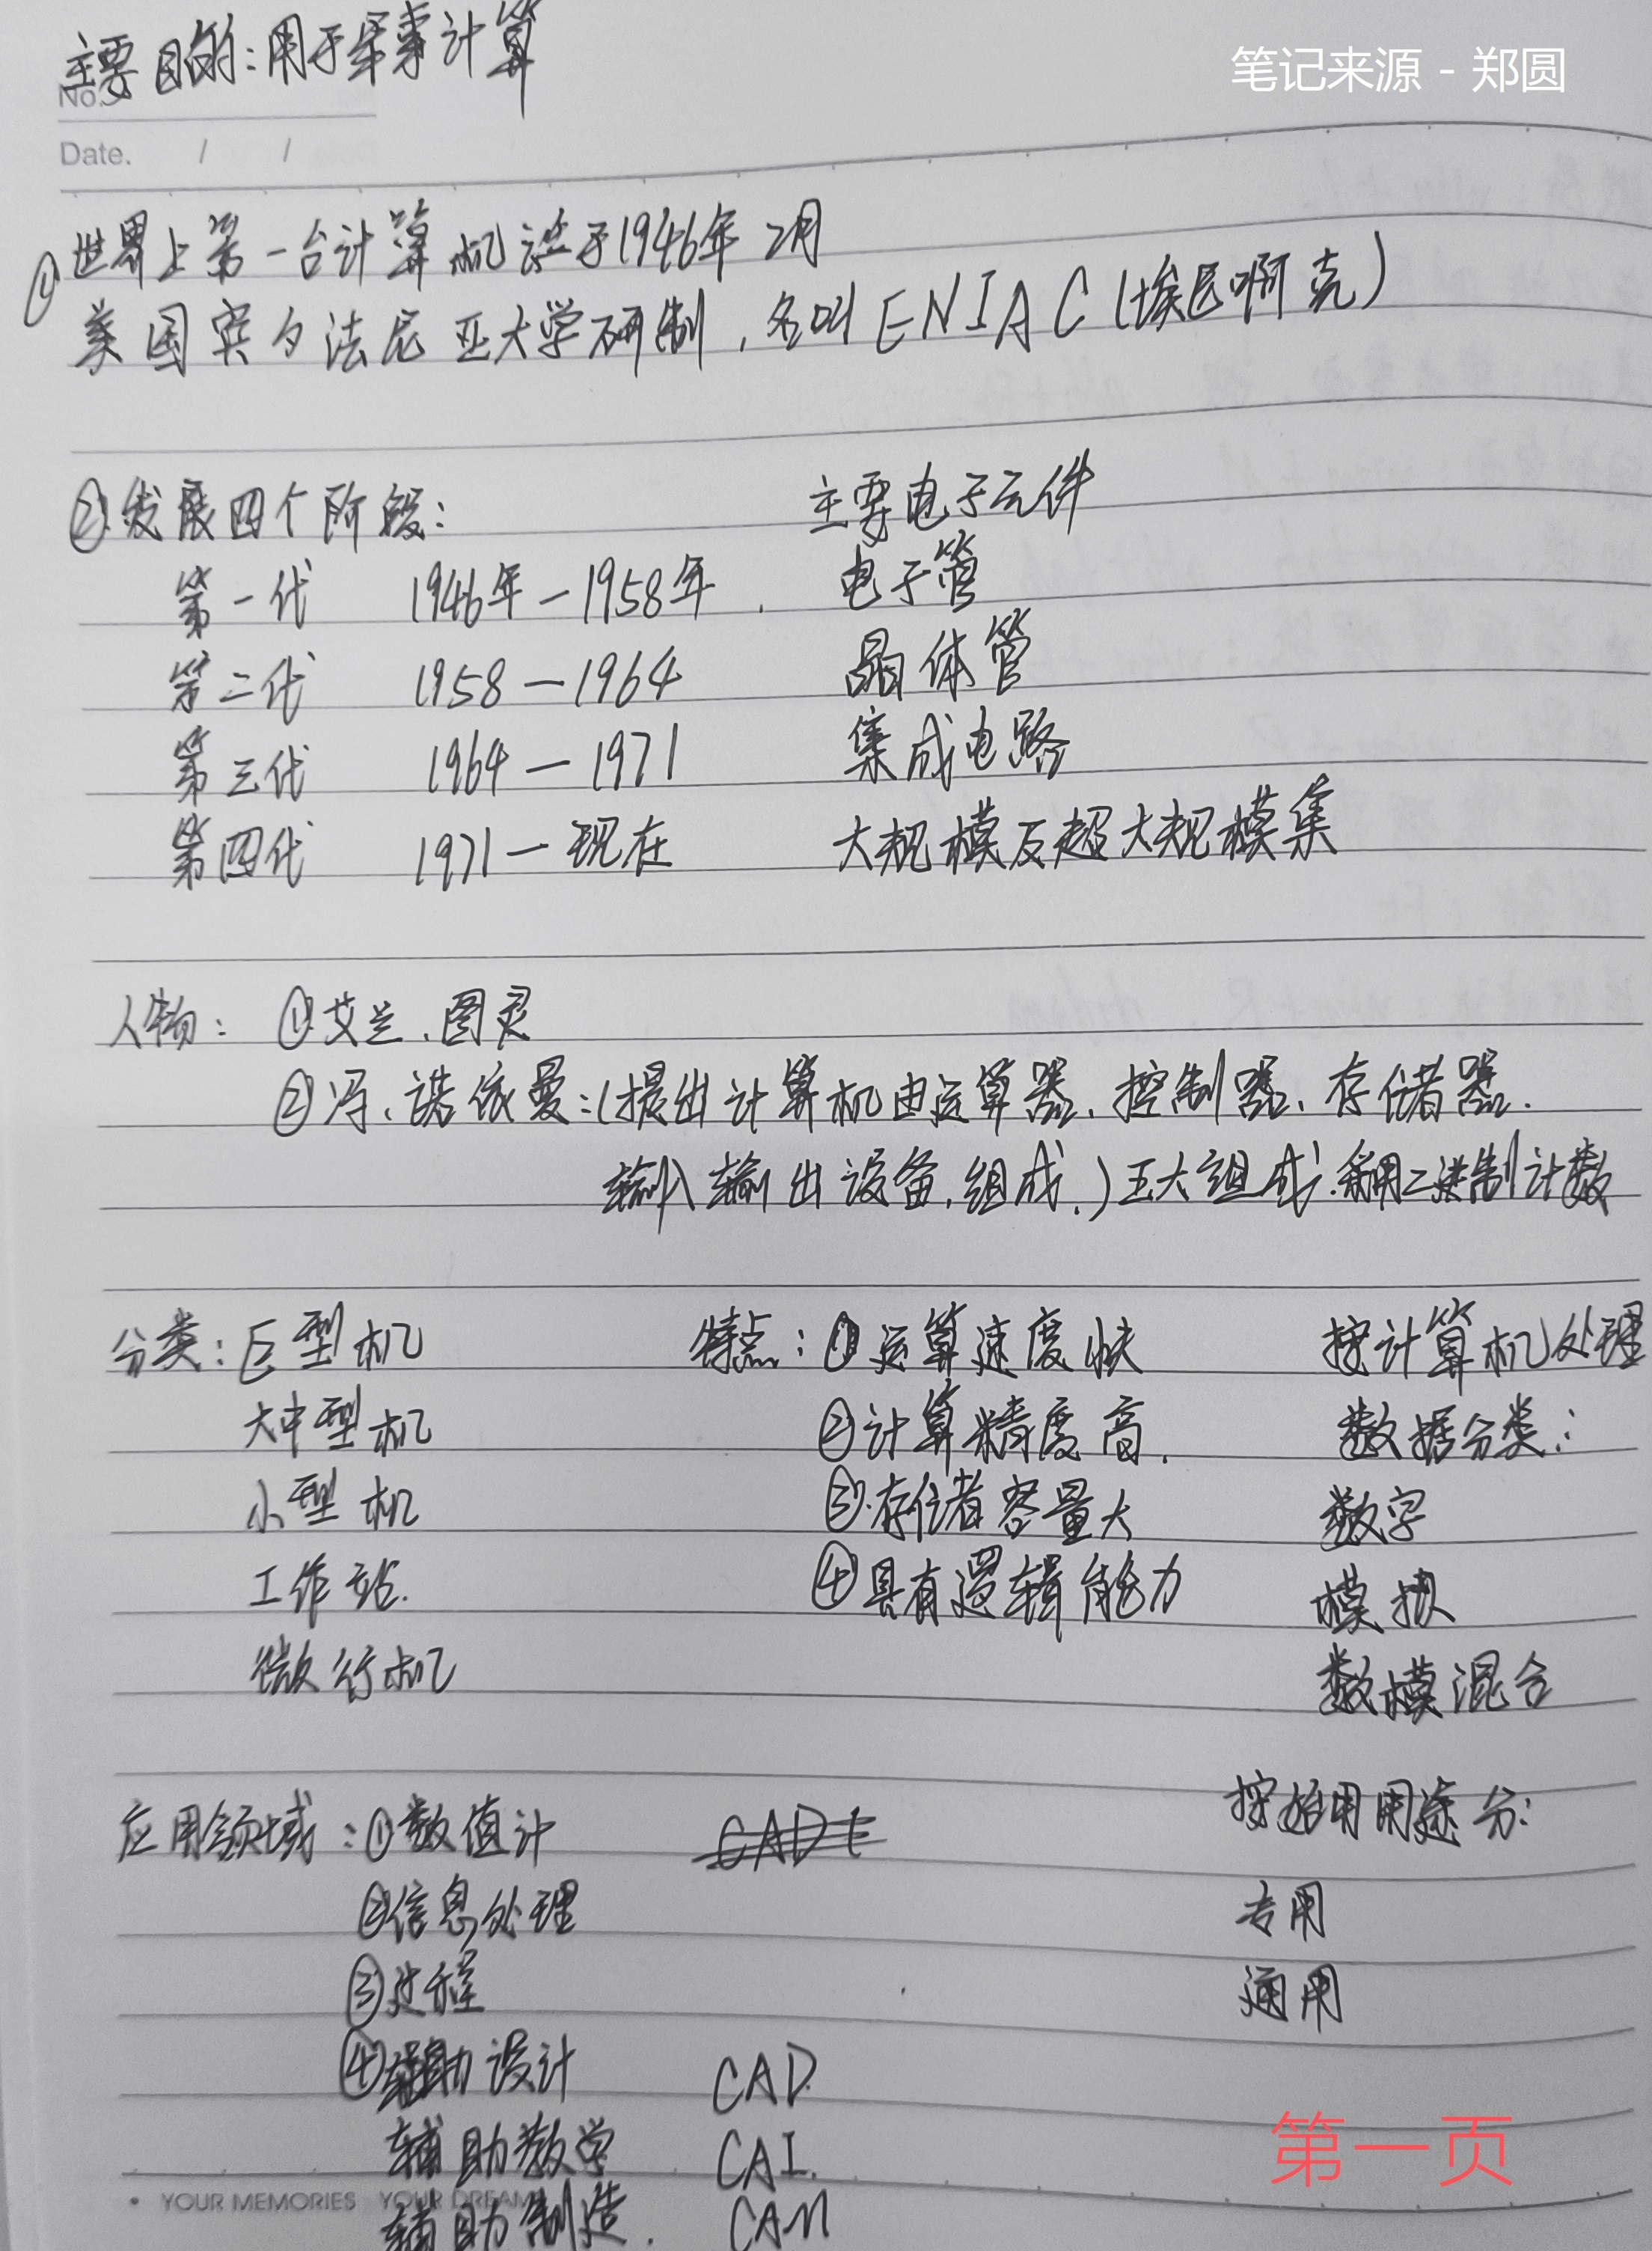 主要目的:用于军事计算
笔记来源 - 郑圆
No.
Date. / /
①世界上第一台计算机诞生于1946年2月
美国宾夕法尼亚大学研制,名叫ENIAC(埃尼啊克)
②发展四个阶段: 主要电子元件
第一代 1946年—1958年. 电子管
第二代 1958—1964 晶体管
第三代 1964—1971 集成电路
第四代 1971—现在 大规模及超大规模集
人物: ①艾兰.图灵
②冯.诺依曼:(提出计算机由运算器、控制器、存储器.
输入输出设备.组成.)五大组成.采用二进制计数
分类:巨型机 特点:①运算速度快 按计算机处理
大中型机 ②计算精度高. 数据分类:
小型机 ③存储容量大 数字
工作站. ④具有逻辑能力 模拟
微行机 数模混合
应用领域:①数值计 按始用用途分:
②信息处理 专用
③过程 通用
④辅助设计 CAD.
辅助教学 CAI.
辅助制造. CAM
• YOUR MEMORIES YOUR DREAM
第一页